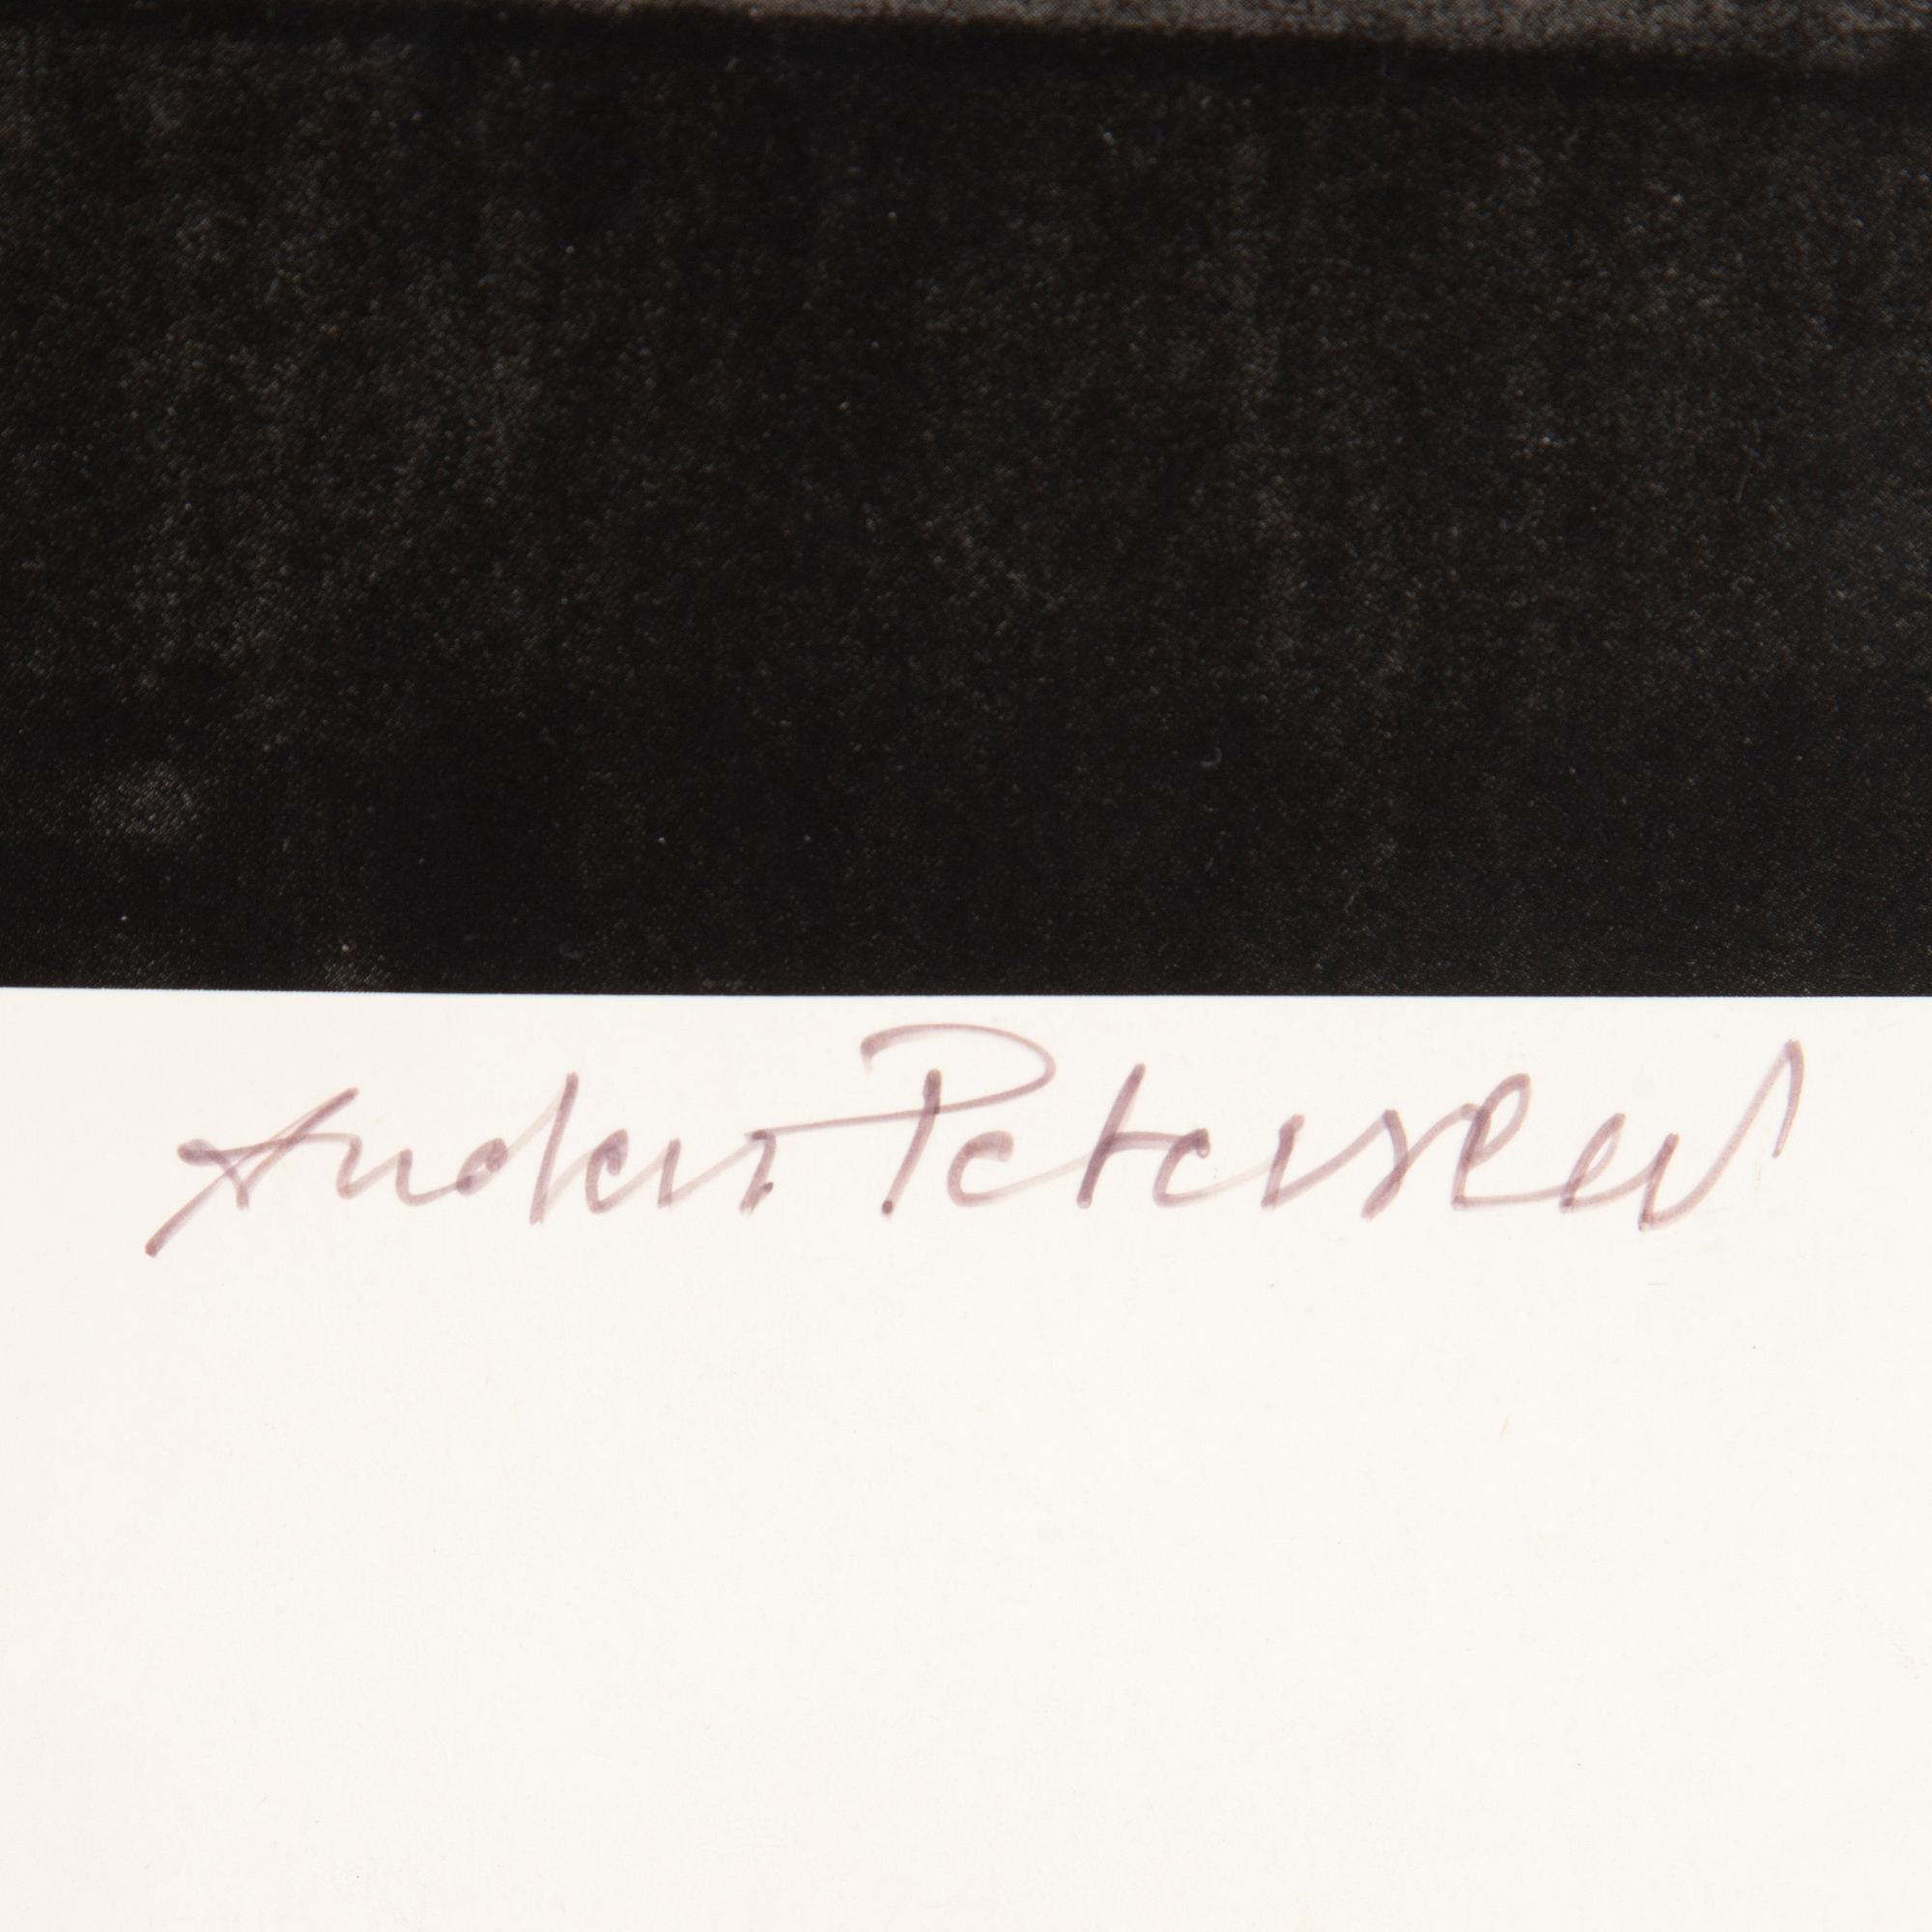 Anders Petersen